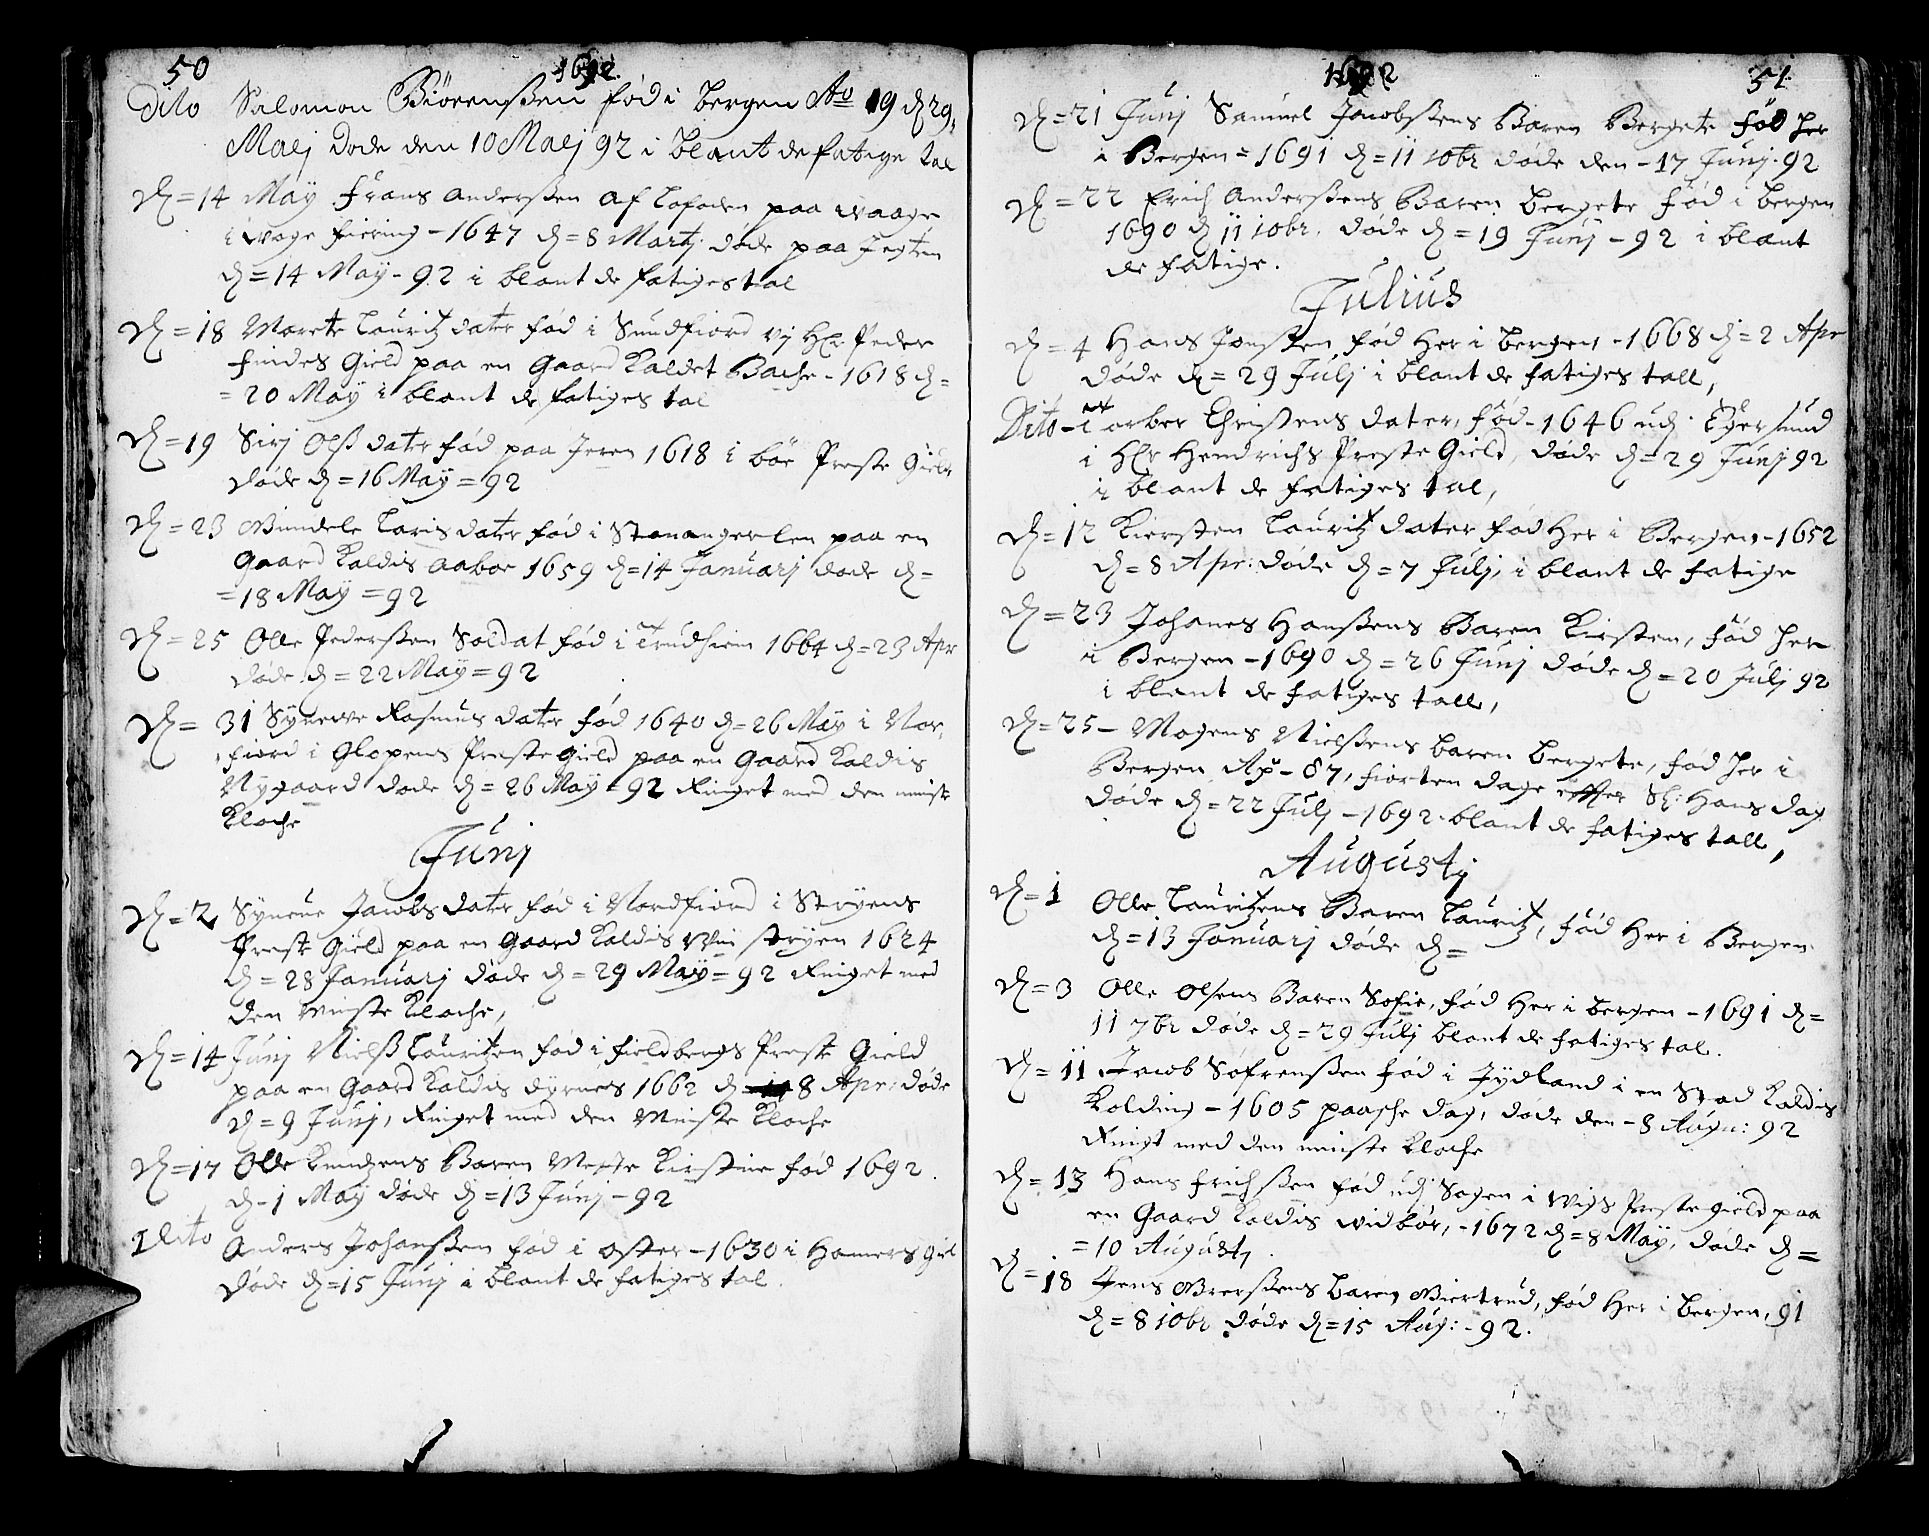 50
1692
Dito Salomon Biörenßen fød i bergen Ao 19 d 29
Maej døde den 10 Maej 92 i blant de fatige tal
D = 14 Maÿ Frans Anderßen af Lofoden paa Waage
i Wage fiering - 1647 d = 8 Martj døde paa Jegten
d = 14 Maÿ - 92 i blant de fatiges tal
D = 18 Marete Lauritz dater fød i Sundfiord vj Her Peder
findes Gield paa en Gaard kaldet Bache - 1618 d =
= 20 Maÿ i blant de fatiges tal
D = 19 Sirj Olß dater fød paa Jeren 1618 i böe Preste Gield
døde d = 16 Maÿ = 92
D = 23 Windele Laris dater fød i Stavangerlen paa en
Gaard kaldis Aaboe 1659 d = 14 Januarj døde d =
= 18 Maÿ = 92
D = 25 Olle Pederßen Soldat fød i Trudhiem 1664 d = 23 Apr
døde d = 22 Maÿ = 92
D = 31 Synewe Rasmus dater fød 1640 d = 26 Maÿ i Nor,
fiord i Glopens Preste gield paa en Gaard kaldis
Nygaard døde d = 26 Maÿ = 92 Ringet med den minste
kloche
Junj
D = 2 Syneue Jacobs dater fød i Nordfiord i Stryens
Preste Gield paa en Gaard kaldis stryen 1624
d = 28 Januarj døde d = 29 Maÿ = 92 Ringet med
den minste kloche,
D = 14 Junj Nielß Lauritzen fød i fieldbergs Preste Gield
paa en Gaard kaldis dyrnes 1662 d 8 Apr: døde
d = 9 Junj, Ringet med den Minste kloche
D = 17 Olle knudzens Baren Mette kirstine fød 1692.
d - 1 Maÿ døde d = 13 Junj - 92
Dito Anders Johanßen fød i oster - 1630 i Hamers giel
døde d = 15 Junj i blant de fatiges tal.
1692
51
D = 21 Junj Samuel Jacobßens Baren Bergete fød her
i Bergen = 1691 d = 11 10br døde den - 17 Junj - 92
D = 22 Erich Anderßens Baren bergete fød i bergen
1690 d 11 10br. døde d = 19 Junj - 92 i blant
de fatige.
Julius
D = 4 Hans Jonßen fød Her i bergen - 1668 d = 2 Apr
døde d = 29 Julj i blant de fatiges tall,
Dito - Torber Christens dater, fød - 1646 udj Egersund
i Her Hendrichs Preste Gield, døde d = 29 Junj 92
i blant de fatiges tal,
D = 12 Kiersten Lauritz dater fød Her i Bergen - 1652
d = 8 Apr: døde d = 7 Julj, i blant de fatige
D = 23 Johanes Hanßens Baren kirsten, fød her
i Bergen - 1690 d = 26 Junj døde d = 20 Julj 92
i blant de fatiges tall,
D = 25 - Mogens Nielßens baren bergete, fød her i
Bergen Ap - 87, fiorten dage effter St: Hans dag
døde d = 22 Julj - 1692 - blant de fatiges tall,
Augustj
D = 1 Olle Lauritzens Baren Lauritz, fød Her i Bergen
d = 13 Januarj døde d =
D = 3 Olle Olsens Baren Sofie, fød Her i bergen - 1691 d =
11 7br døde d = 29 Julj blant de fatiges tal.
D = 11 Jacob Søfrenßen fød i Jydland i en Stad kaldis
kolding - 1605 paasche dag, døde den - 8 Augu: 92
Ringt med den minste kloche
D = 13 Hans Erichßen fød udj Sogen i Wigs Preste gield paa
en Gaard kaldis Widbør, - 1672 d = 8 Maÿ, døde d =
= 10 Augustj.
D = 18 Jens Brerßens baren Giertrud, fød Her i bergen, 91
d = 8 10br døde d = 15 Aug: - 92.